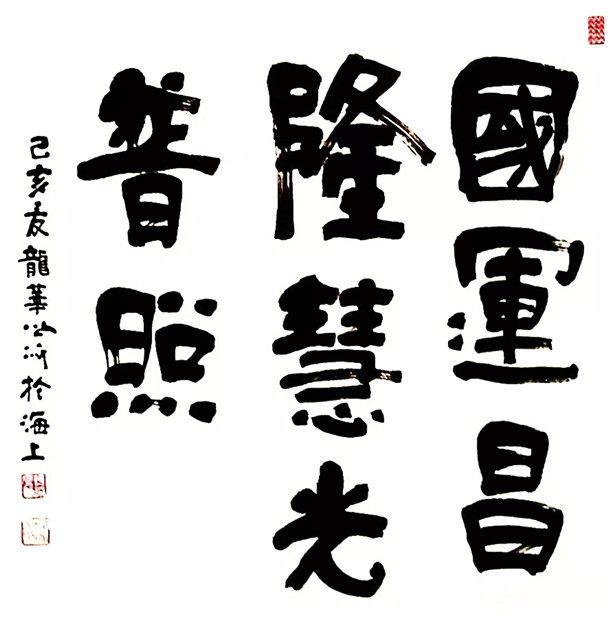 國運昌
隆慧光
普照
己亥友龍華於海上